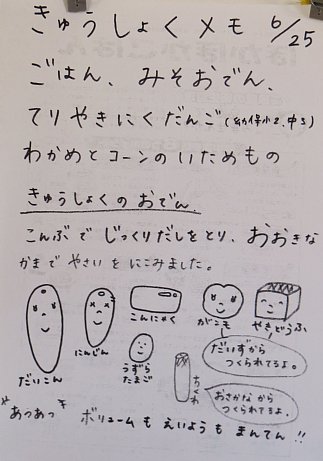 きゅうしょくメモ 6/25
ごはん、みそおでん、
てりやきにくだんご(幼保小2、中3)
わかめとコーンのいためもの
きゅうしょくのおでん
こんぶでじっくりだしをとり、おおきな
かまでやさいをにこみました。
だいこん
にんじん
こんにゃく
うずら
たまご
がんも
やきどうふ
だいずから
つくられてるよ。
ちくわ
おさかなから
つくられてるよ。
あつあつ ボリュームもえいようもまんてん!!